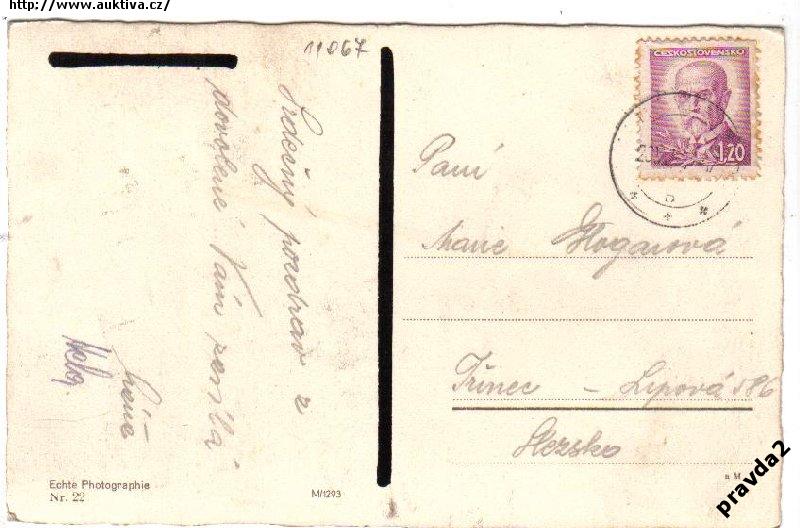 http://www.auktiva.cz/
11067
ČESKOSLOVENSKO
1.20
Srdečný pozdrav z
dovolené Vám zasílá
Paní
Marie
Třinec - Lipová 586
Slezsko
Echte Photographie
Nr. 22
M/1293
pravda2